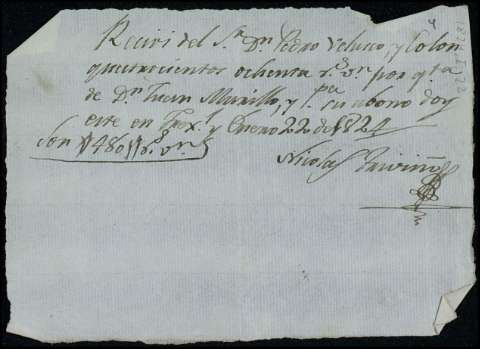 Reciví del Sr. Dn. Pedro Velasco, y Colon
quatrocientos ochenta rs. vn. por qta
de Dn. Juan Murillo, y pa. su abono doy
este en y Enero 22 de 1824
Son 480 rs. vn.
Nicolas